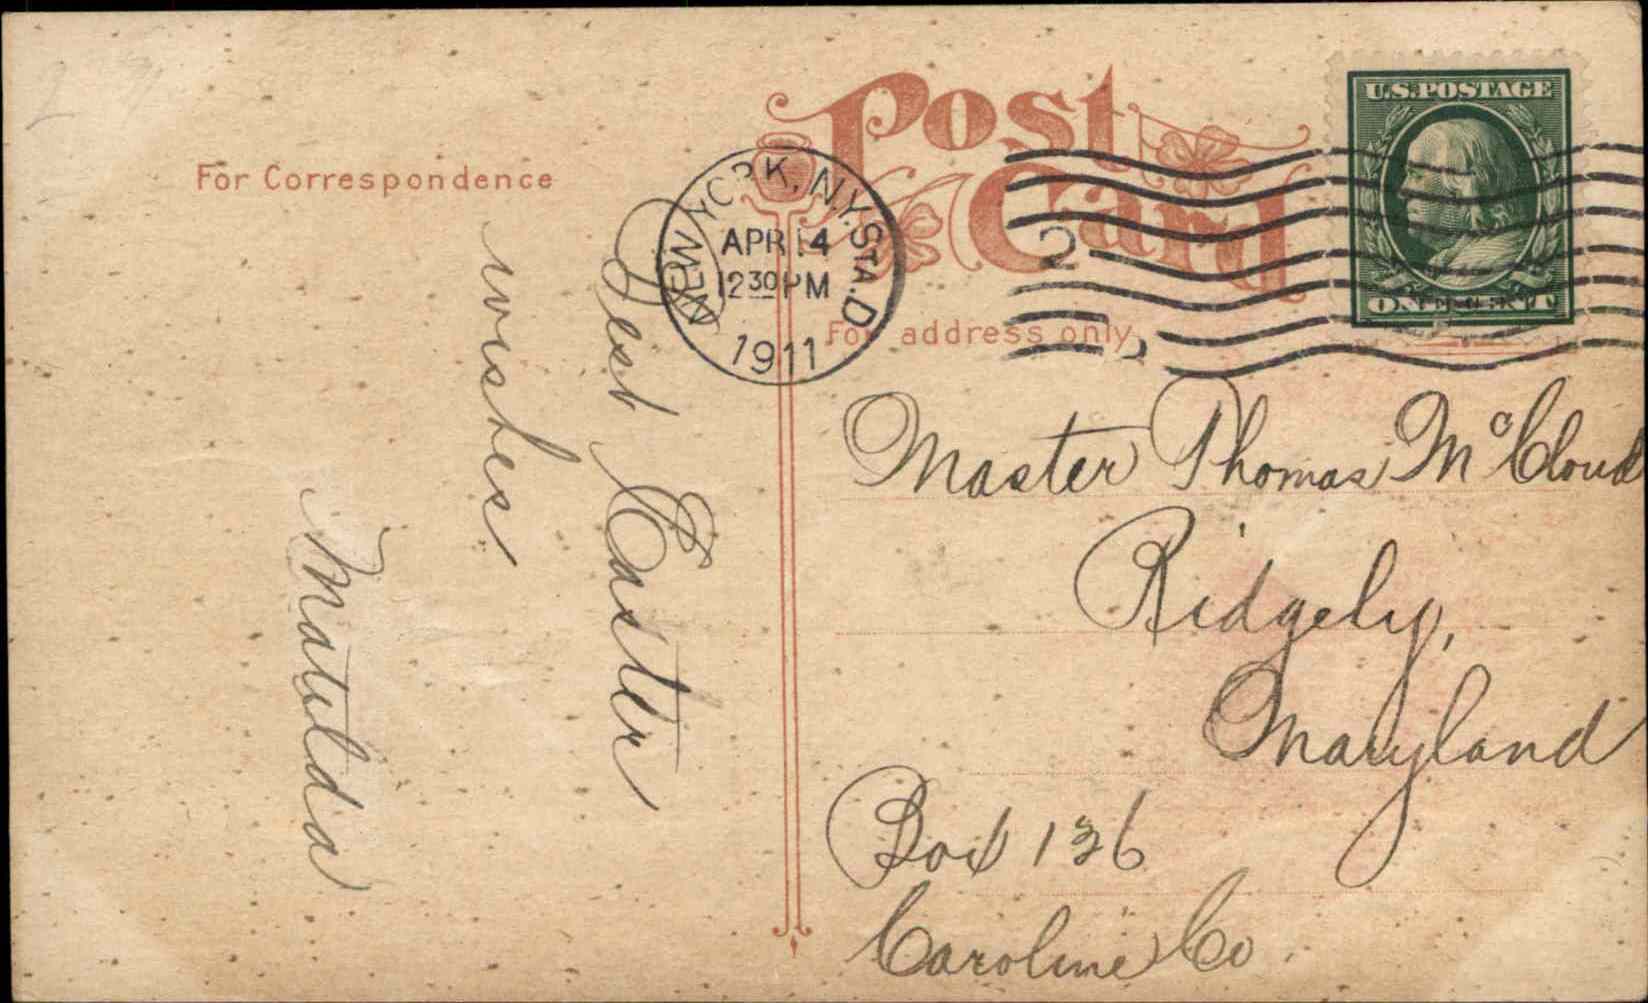 Post
Card
For Correspondence
For address only
U.S. POSTAGE
ONE CENT
NEW YORK, N.Y. STA. D
APR 14
12 30 PM
1911
2
Best Easter
wishes.
Matilda
Master Thomas McCloud
Ridgely,
Maryland
Box 126
Caroline Co.